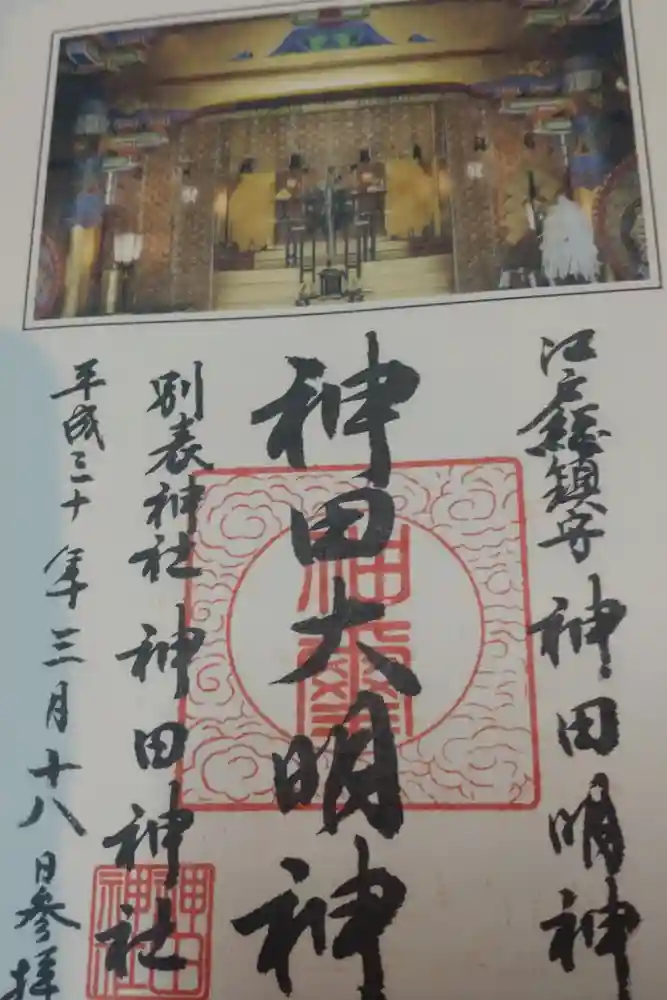 江戸総鎮守 神田明神
神田大明神
神璽
別表神社 神田神社
神田神社
平成三十年三月十八日参拝